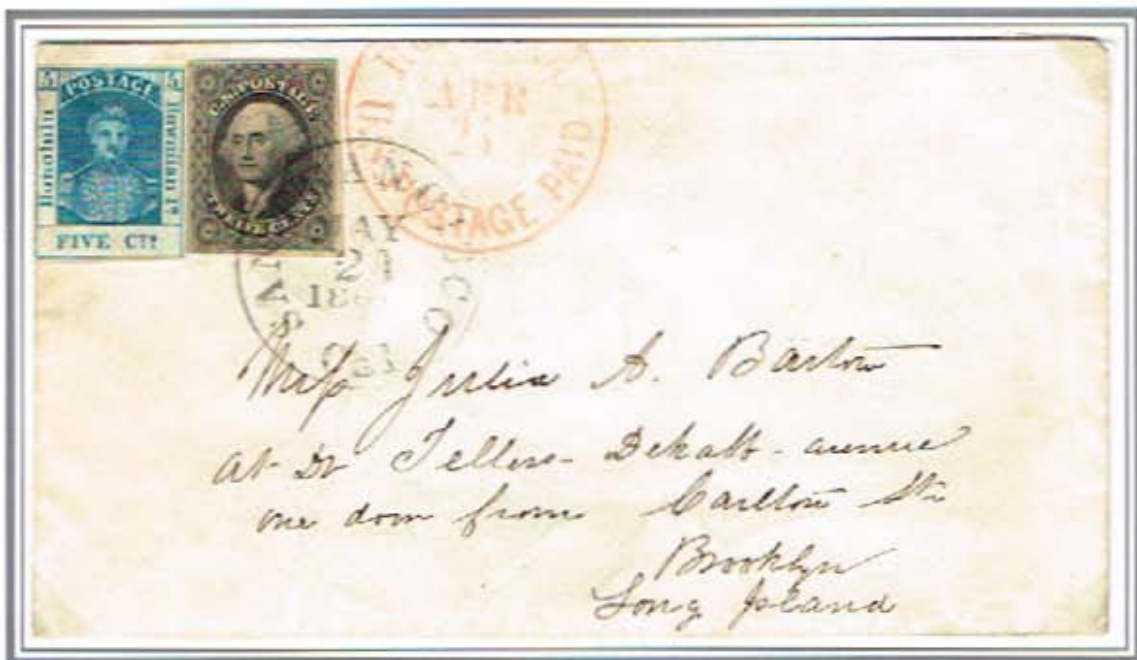 5 POSTAGE 5
Honolulu
Hawaiian Is.
FIVE Cts.
U.S. POSTAGE
TWELVE CENTS
U.S. POSTAGE PAID
APR
SAN FRANCISCO
MAY
Cal
Miss Julia A. Barton
at Dr Tellers - Dekalb - avenue
one door from Carlton St.
Brooklyn
Long Island